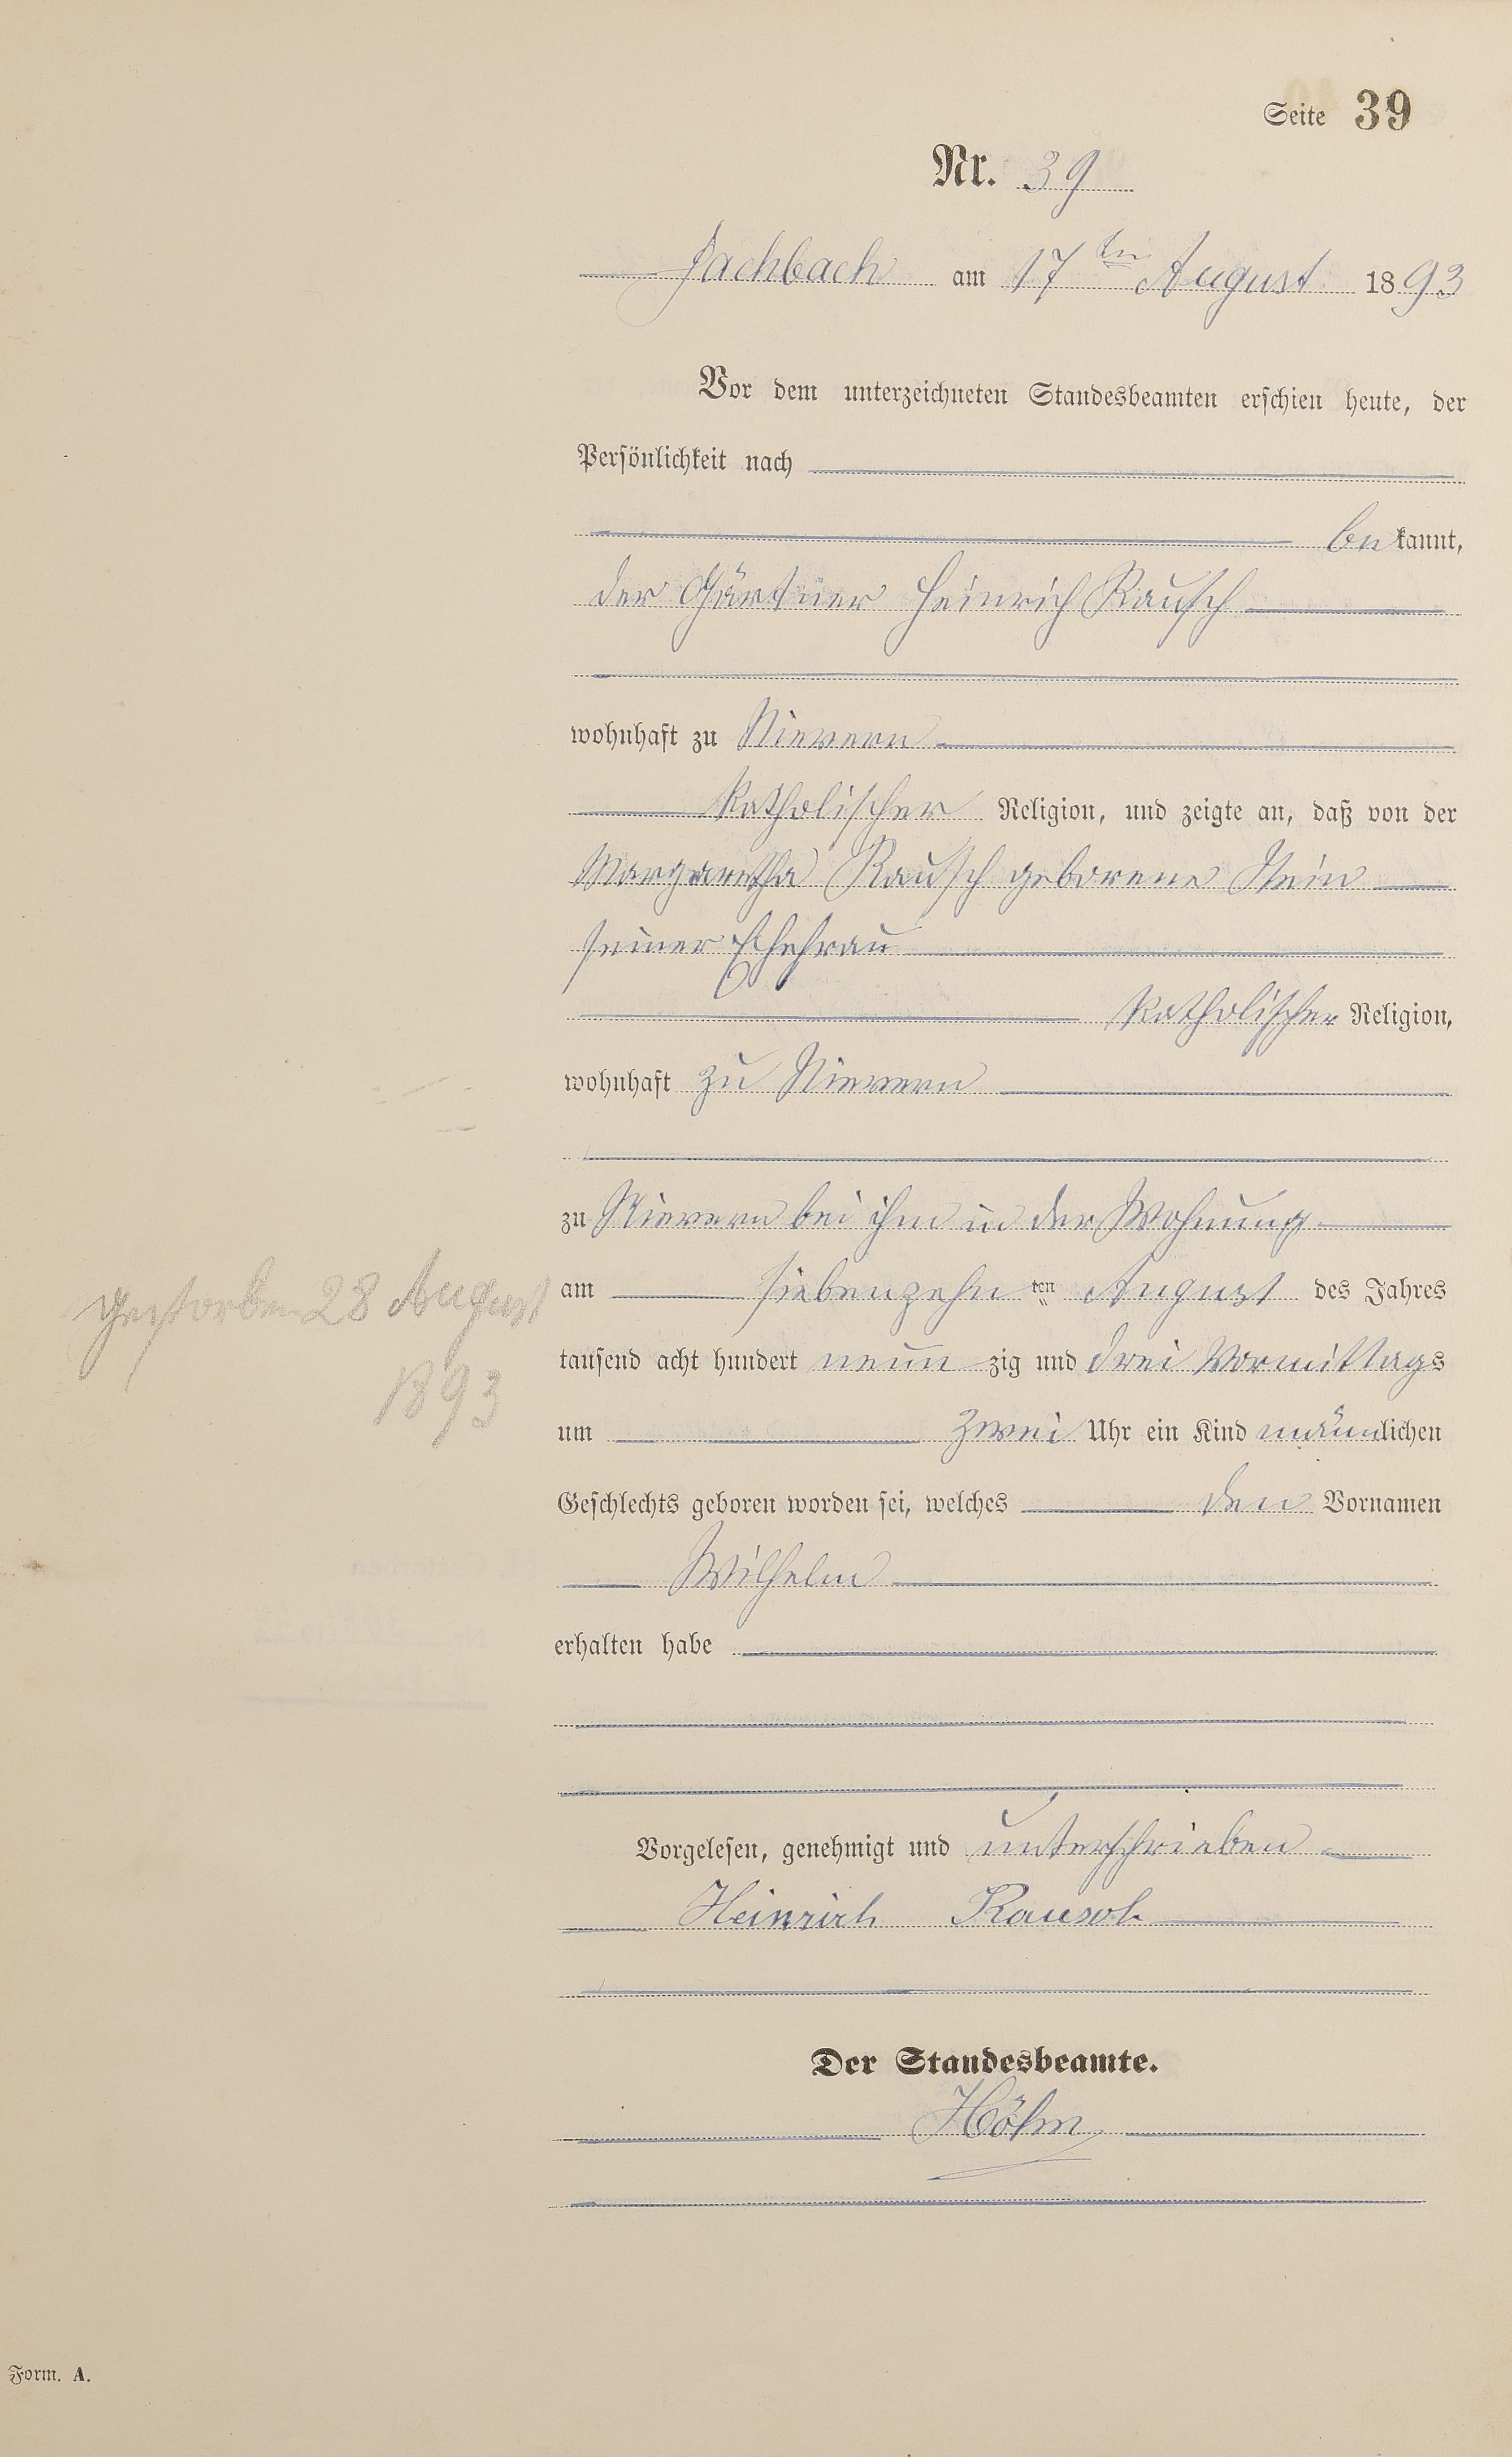 Seite 39
Nr. 39
Fachbach am 17ten August 1893
Vor dem unterzeichneten Standesbeamten erschien heute, der
Persönlichkeit nach
bekannt,
der Gärtner Heinrich Rausch
wohnhaft zu Nievern
katholischer Religion, und zeigte an, daß von der
Margaretha Rausch geborene Stein
seiner Ehefrau
katholischer Religion,
wohnhaft zu Nievern
zu Nievern bei ihm in der Wohnung
am siebenzehnten August des Jahres
tausend acht hundert neunzig und drei Vormittags
um zwei Uhr ein Kind männlichen
Geschlechts geboren worden sei, welches den Vornamen
Wilhelm
erhalten habe
Vorgelesen, genehmigt und unterschrieben
Heinrich Rausch
Der Standesbeamte.
Höhn
gestorben 28 August
1893
Form. A.